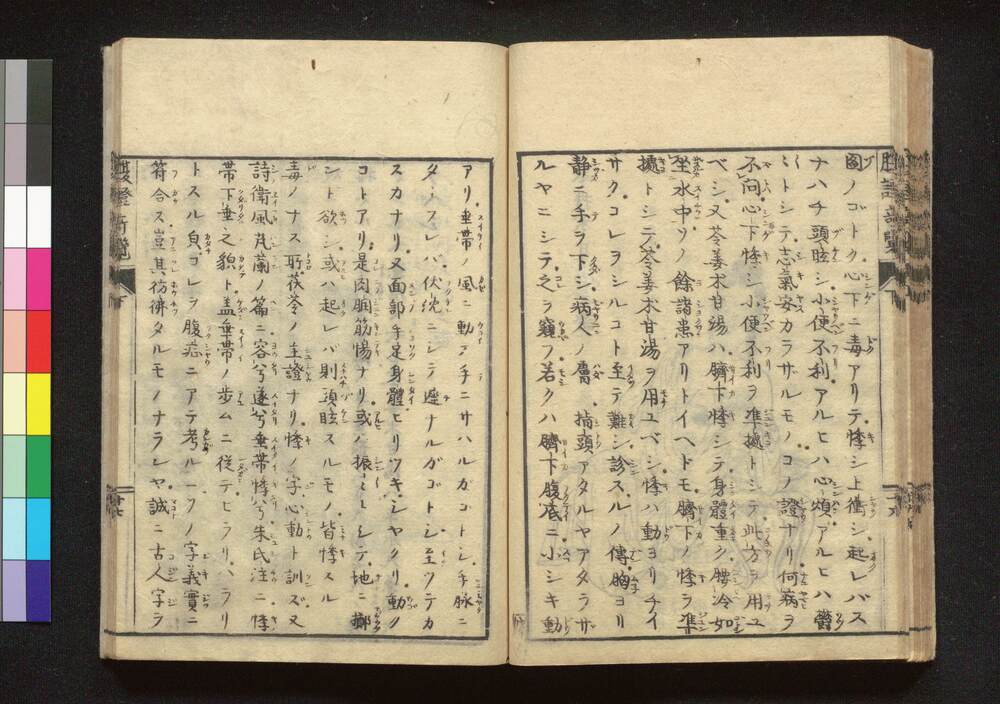 圖ノゴトク心下ニ毒アリテ悸シ上衝シ起レバス
ナハチ頭眩シ小便不利アルヒハ心煩アルヒハ欝
々トシテ志氣安カラザルモノコノ證ナリ何病ヲ
不問心下悸シ小便不利ヲ準據トシテ此方ヲ用ユ
ベシ又苓姜朮甘湯ハ臍下悸シテ身體重ク腰冷如
坐水中ソノ餘諸患アリトイヘドモ臍下ノ悸ヲ準
據トシテ苓姜朮甘湯ヲ用ユベシ悸ハ動ヨリチイ
サクコレヲシルコト至テ難シ診スルノ傳胸ヨリ
静ニ手ヲ下シ病人ノ膚指頭アタルヤアタラザ
ルヤニシテ之ヲ窺フ若クハ臍下腹底ニ小シキ動
アリ垂帯ノ風ニ動テ手ニサハルガゴトシ手脉ニ
タトスレバ伏沈ニシテ遲ナルガゴトシ至ツテカ
スカナリ又面部手足身體ヒリツキシヤクリ動ク
コトアリ是肉𥆧筋惕ナリ或ハ振々トシテ地ニ擲
ント欲シ或ハ起レバ則頭眩スルモノ皆悸スル
毒ノナス所茯苓ノ主證ナリ悸ノ字心動ト訓ズ又
詩衛風芄蘭ノ篇ニ容兮遂兮垂帯悸兮朱氏注ニ悸
帯下垂之貌ト盖垂帯ノ歩ムニ従テヒラリハラリ
トスル皃コレヲ腹症ニアテ考ルニソノ字義實ニ
符合ス豈其彷彿タルモノナランヤ誠ニ古人字ヲ